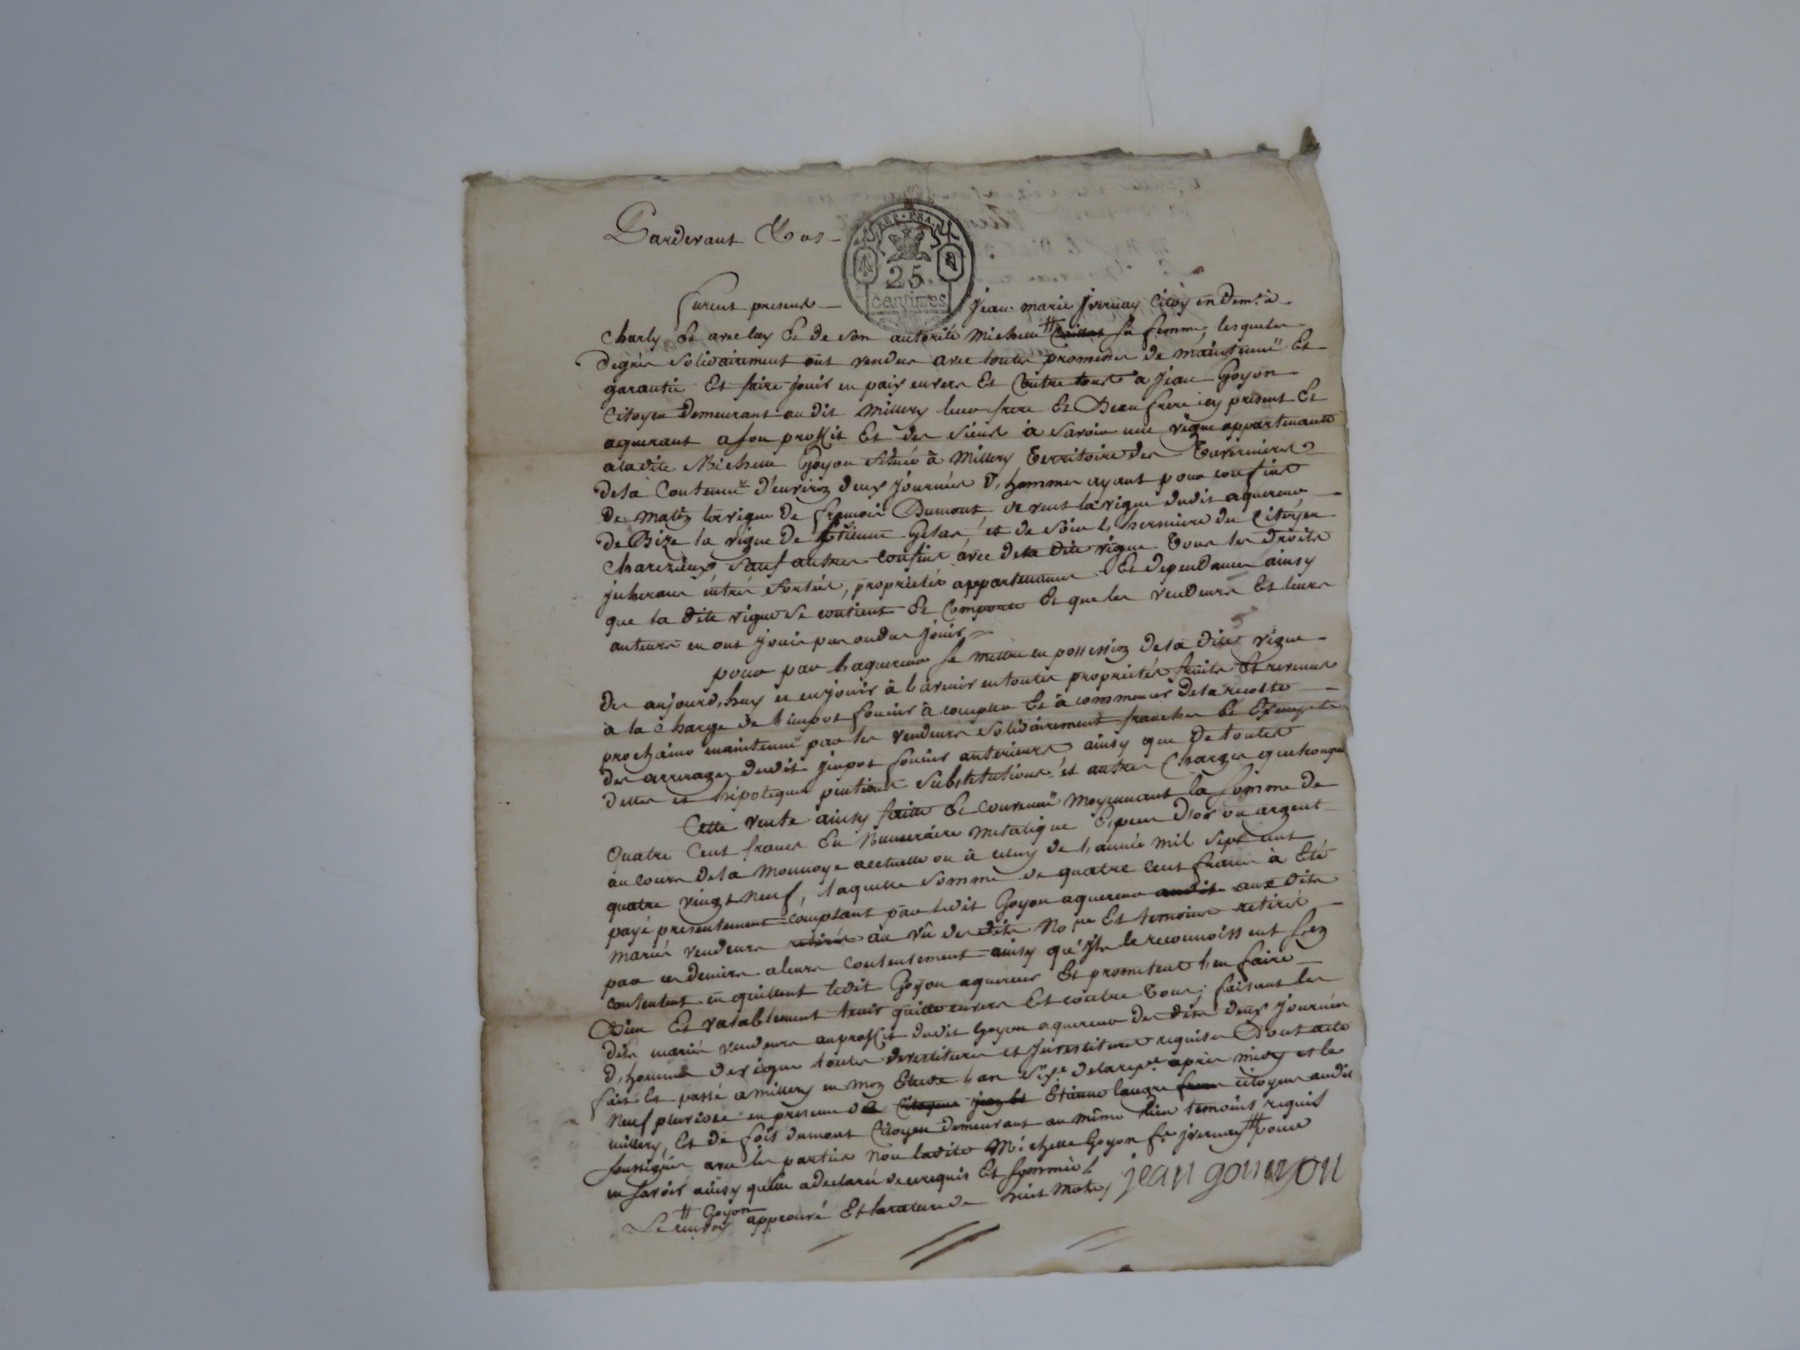 Pardevant Nous
REP. FRA.
25
centimes
furent presens jean marie jvernay Citoyen Demt. à
Charly Et avec luy Et de son autorité Michelle ╫ sa femme, lesquels
Degrés Solidairement ont vendus avec toutes promesses de maintenue Et
garantie Et faire jouir en paix envers Et Contre tous à Jean Goyon
Citoyen Demeurant audit Millery leur frere Et Beau frere icy présent Et
aquerant a son proffit Et des siens à Savoir une vigne appartenante
a ladite Michelle Goyon Située à Millery Territoire des
de la Contenue d'environ deux journées d'hommes ayant pour confins
de matin la vigne de françois Dumont de vent la vigne dudit aquereur
de Bize la vigne de Etienne et de Soir le du Citoyen
Sauf autres confins avec de la dite vigne Tous les droits
entrés Sorties, propriétés appartenances Et dependances ainsy
que la dite vigne Se contient Et Comporte Et que les vendeurs Et leurs
auteurs en ont jouis pu ou du jouir
pour par laquereur Se mettre en possession de la dite vigne
des aujourd'huy et en jouir à l'avenir en toutes propriétés fruits Et revenus
à la Charge de l'impot foncier à compter Et à commencer de la recolte
prochaine maintenue par les vendeurs Solidairement franches Et Exemptes
des arrerages dudit jmpot foncier anterieurs ainsy que de toutes
dettes et hipoteques pentions Substitutions et autres Charges quelconques
Cette vente ainsy faitte Et Convenue Moyennant la Somme de
Quatre Cent francs En Numeraire Metalique Especes D'or ou argent
au cours de la Monnoye actuelle ou à celuy de l'année mil Sept cent
quatre vingt Neuf, laquelle Somme de quatre Cent francs à Eté
payé presentement comptant par ledit Goyon aquereur audit aux dits
Mariés vendeurs retirée au vû des dits Nore. Et temoins retirée
par ces derniers a leurs Contentement ainsy qu'ils le reconnoissent S'en
contentent en quittent ledit Goyon aquereur Et promettent l'en faire
Bien Et valablement tenir quitte envers Et contre Tous; faisant les
dits mariés vendeurs au proffit dudit Goyon aquereur des dites deux journées
d'hommes de vigne toutes devestitures et jnvestitures requises Dont acte
fait Et passé a Millery en mon Etude l'an Sixe. de la repe. après midy et le
Neuf pluviose en presence de Citoyens Etienne citoyen audit
millery, Et de fois dumont Citoyen demeurant au même lieu temoins requis
Soussignés avec les parties Non ladite Michelle Goyon fe. jvernay ╫ pour
ne Savoir ainsy qu'elle a declaré de ce requis Et Sommée
╫ Goyon
Le renvoy approuvé Et la rature de huit Mots,
jean gounyon